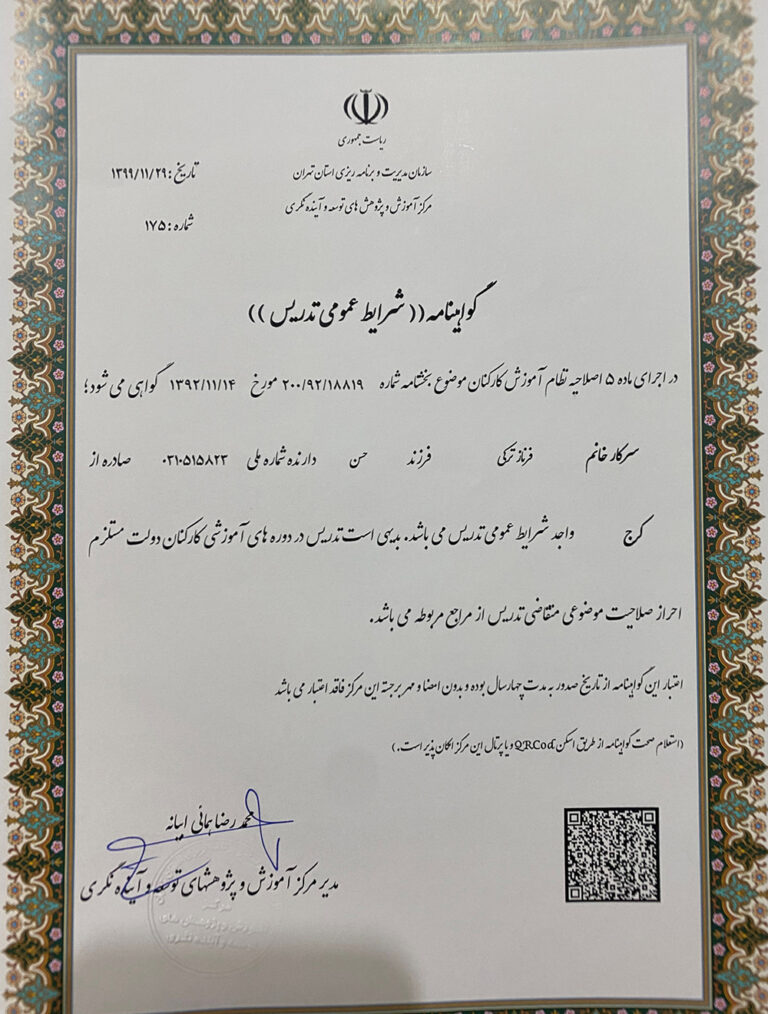 ریاست جمهوری
سازمان مدیریت و برنامه ریزی استان تهران
مرکز آموزش و پژوهش های توسعه و آینده نگری
تاریخ: ۱۳۹۹/۱۱/۲۹
شماره: ۱۷۵
گواهینامه (( شرایط عمومی تدریس ))
در اجرای ماده ۵ اصلاحیه نظام آموزش کارکنان موضوع بخشنامه شماره ۲۰۰/۹۲/۱۸۸۱۹ مورخ ۱۳۹۲/۱۱/۱۴ گواهی می شود؛
سرکار خانم فرناز ترکی فرزند حسن دارنده شماره ملی ۰۳۱۰۵۱۵۸۲۳ صادره از
کرج واجد شرایط عمومی تدریس می باشد. بدیهی است تدریس در دوره های آموزشی کارکنان دولت مستلزم
احراز صلاحیت موضوعی متقاضی تدریس از مراجع مربوطه می باشد.
اعتبار این گواهینامه از تاریخ صدور به مدت چهار سال بوده و بدون امضا و مهر برجسته این مرکز فاقد اعتبار می باشد
(استعلام صحت گواهینامه از طریق اسکن QRCod و یا پرتال این مرکز امکان پذیر است.)
محمد رضا بهائی ابیانه
مدیر مرکز آموزش و پژوهشهای توسعه و آینده نگری